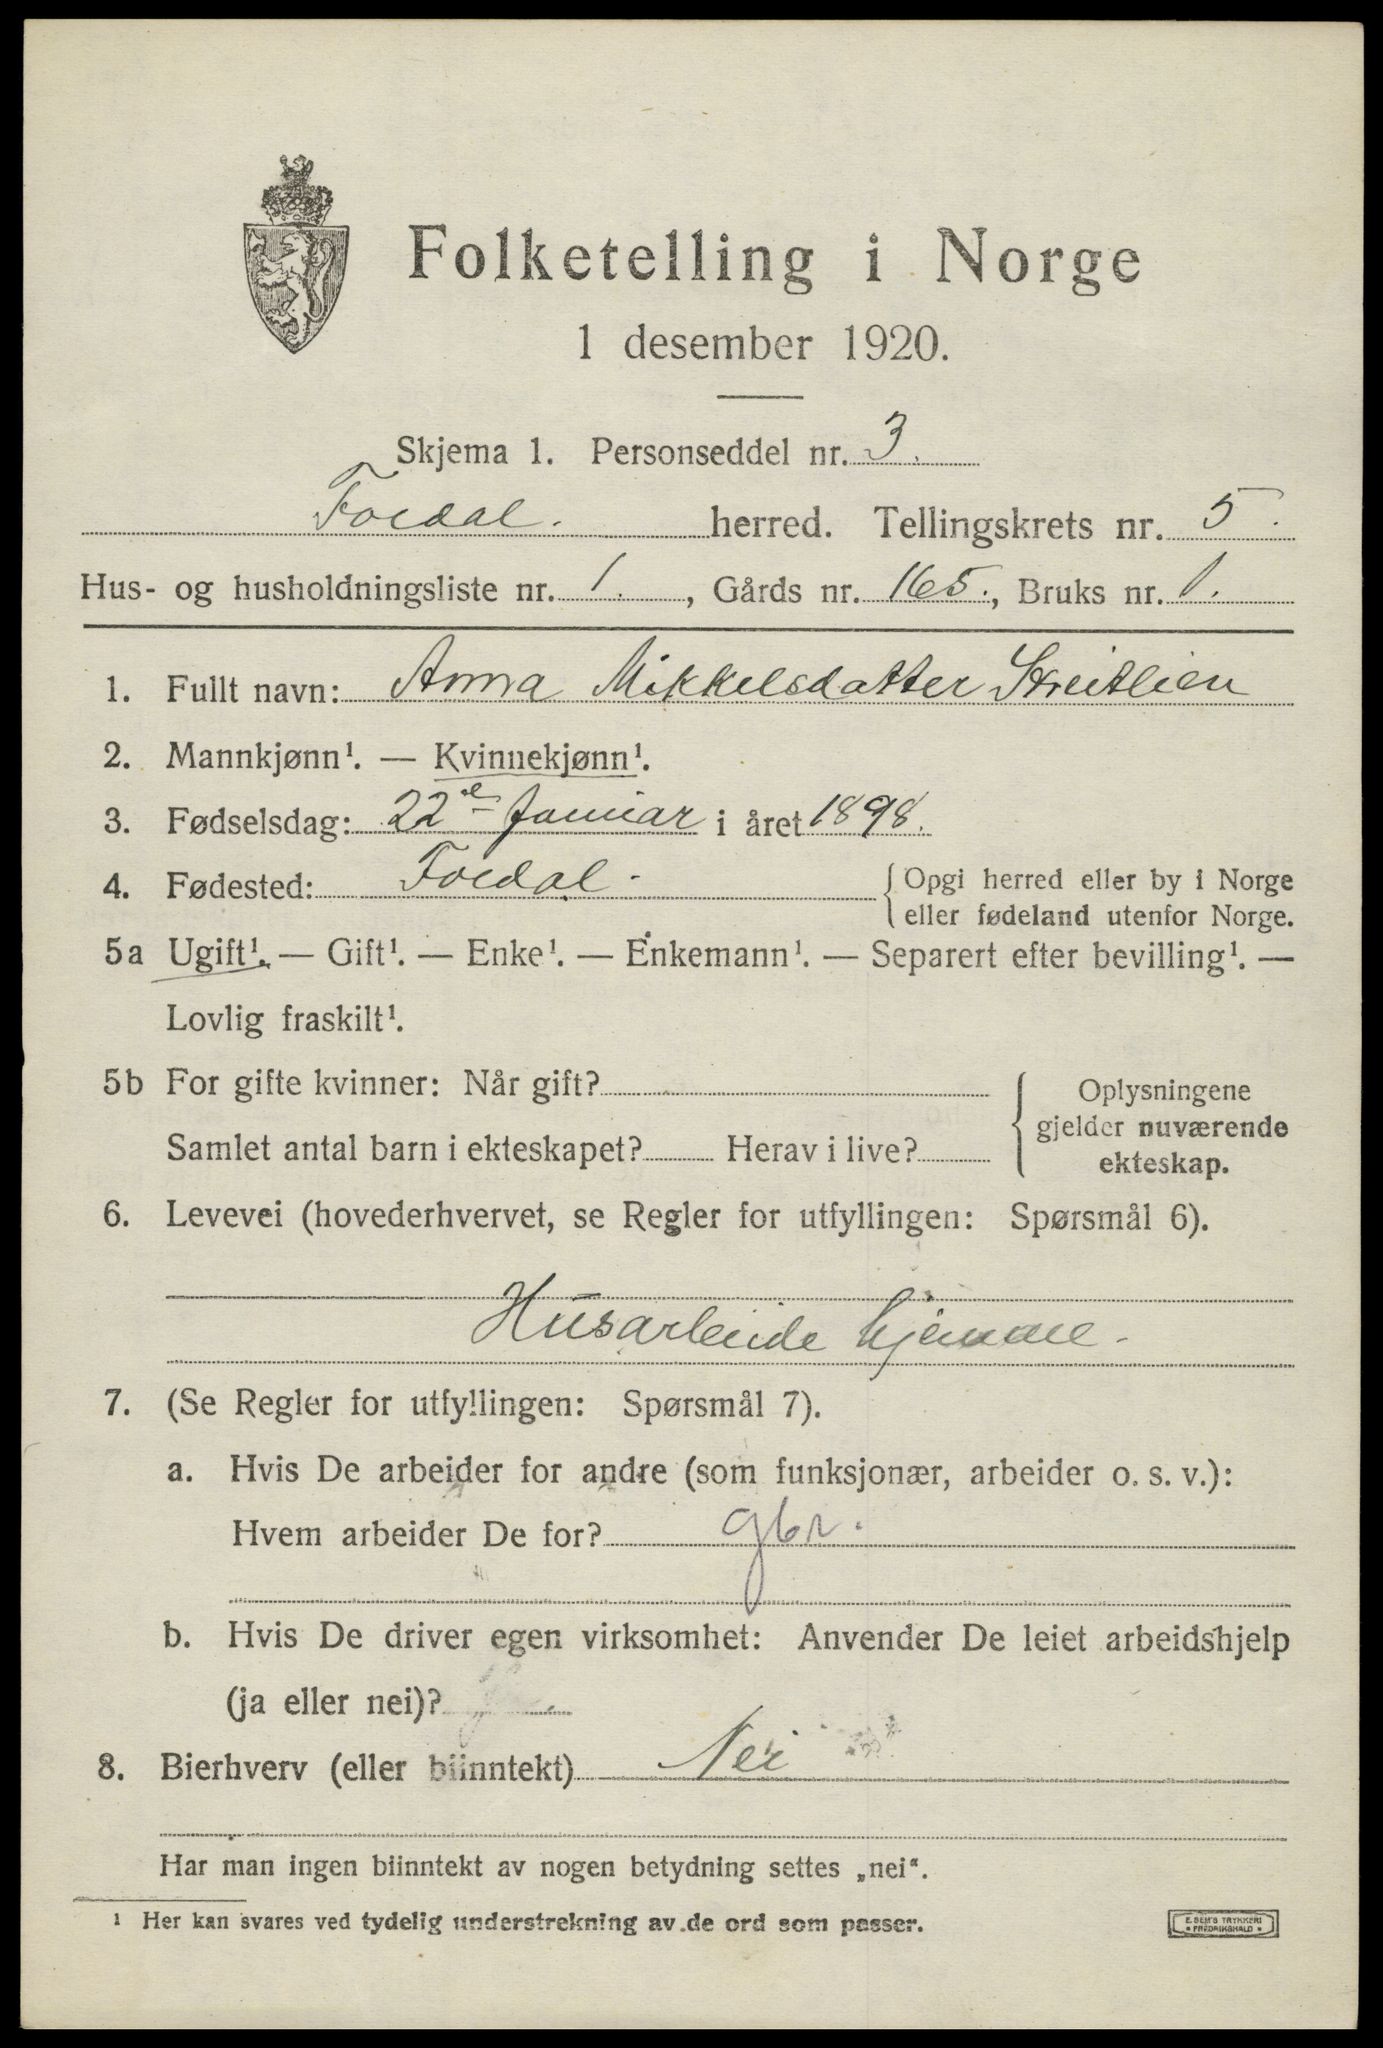 Folketelling i Norge
1 desember 1920.
Skjema 1. Personseddel nr. 3.
Foldal. herred. Tellingskrets nr. 5.
Hus- og husholdningsliste nr. 1., Gårds nr. 165., Bruks nr. 1.
1. Fullt navn: Anna Mikkelsdatter Streitlien
2. Mannkjønn¹. — Kvinnekjønn¹.
3. Fødselsdag: 22de Januar i året 1898.
4. Fødested: Foldal. {Opgi herred eller by i Norge
eller fødeland utenfor Norge.
5a Ugift¹. — Gift¹. — Enke¹. — Enkemann¹. — Separert efter bevilling¹. —
Lovlig fraskilt¹.
5b For gifte kvinner: Når gift?
Samlet antal barn i ekteskapet? Herav i live?
{Oplysningene
gjelder nuværende
ekteskap.
6. Levevei (hovederhvervet, se Regler for utfyllingen: Spørsmål 6).
Husarbeide hjemme.
7. (Se Regler for utfyllingen: Spørsmål 7).
a. Hvis De arbeider for andre (som funksjonær, arbeider o. s. v.):
Hvem arbeider De for? gbr.
b. Hvis De driver egen virksomhet: Anvender De leiet arbeidshjelp
(ja eller nei)?
8. Bierhverv (eller biinntekt) Nei
Har man ingen biinntekt av nogen betydning settes „nei“.
¹ Her kan svares ved tydelig understrekning av de ord som passer.
E. SEM'S TRYKKERI
• FREDRIKSHALD •